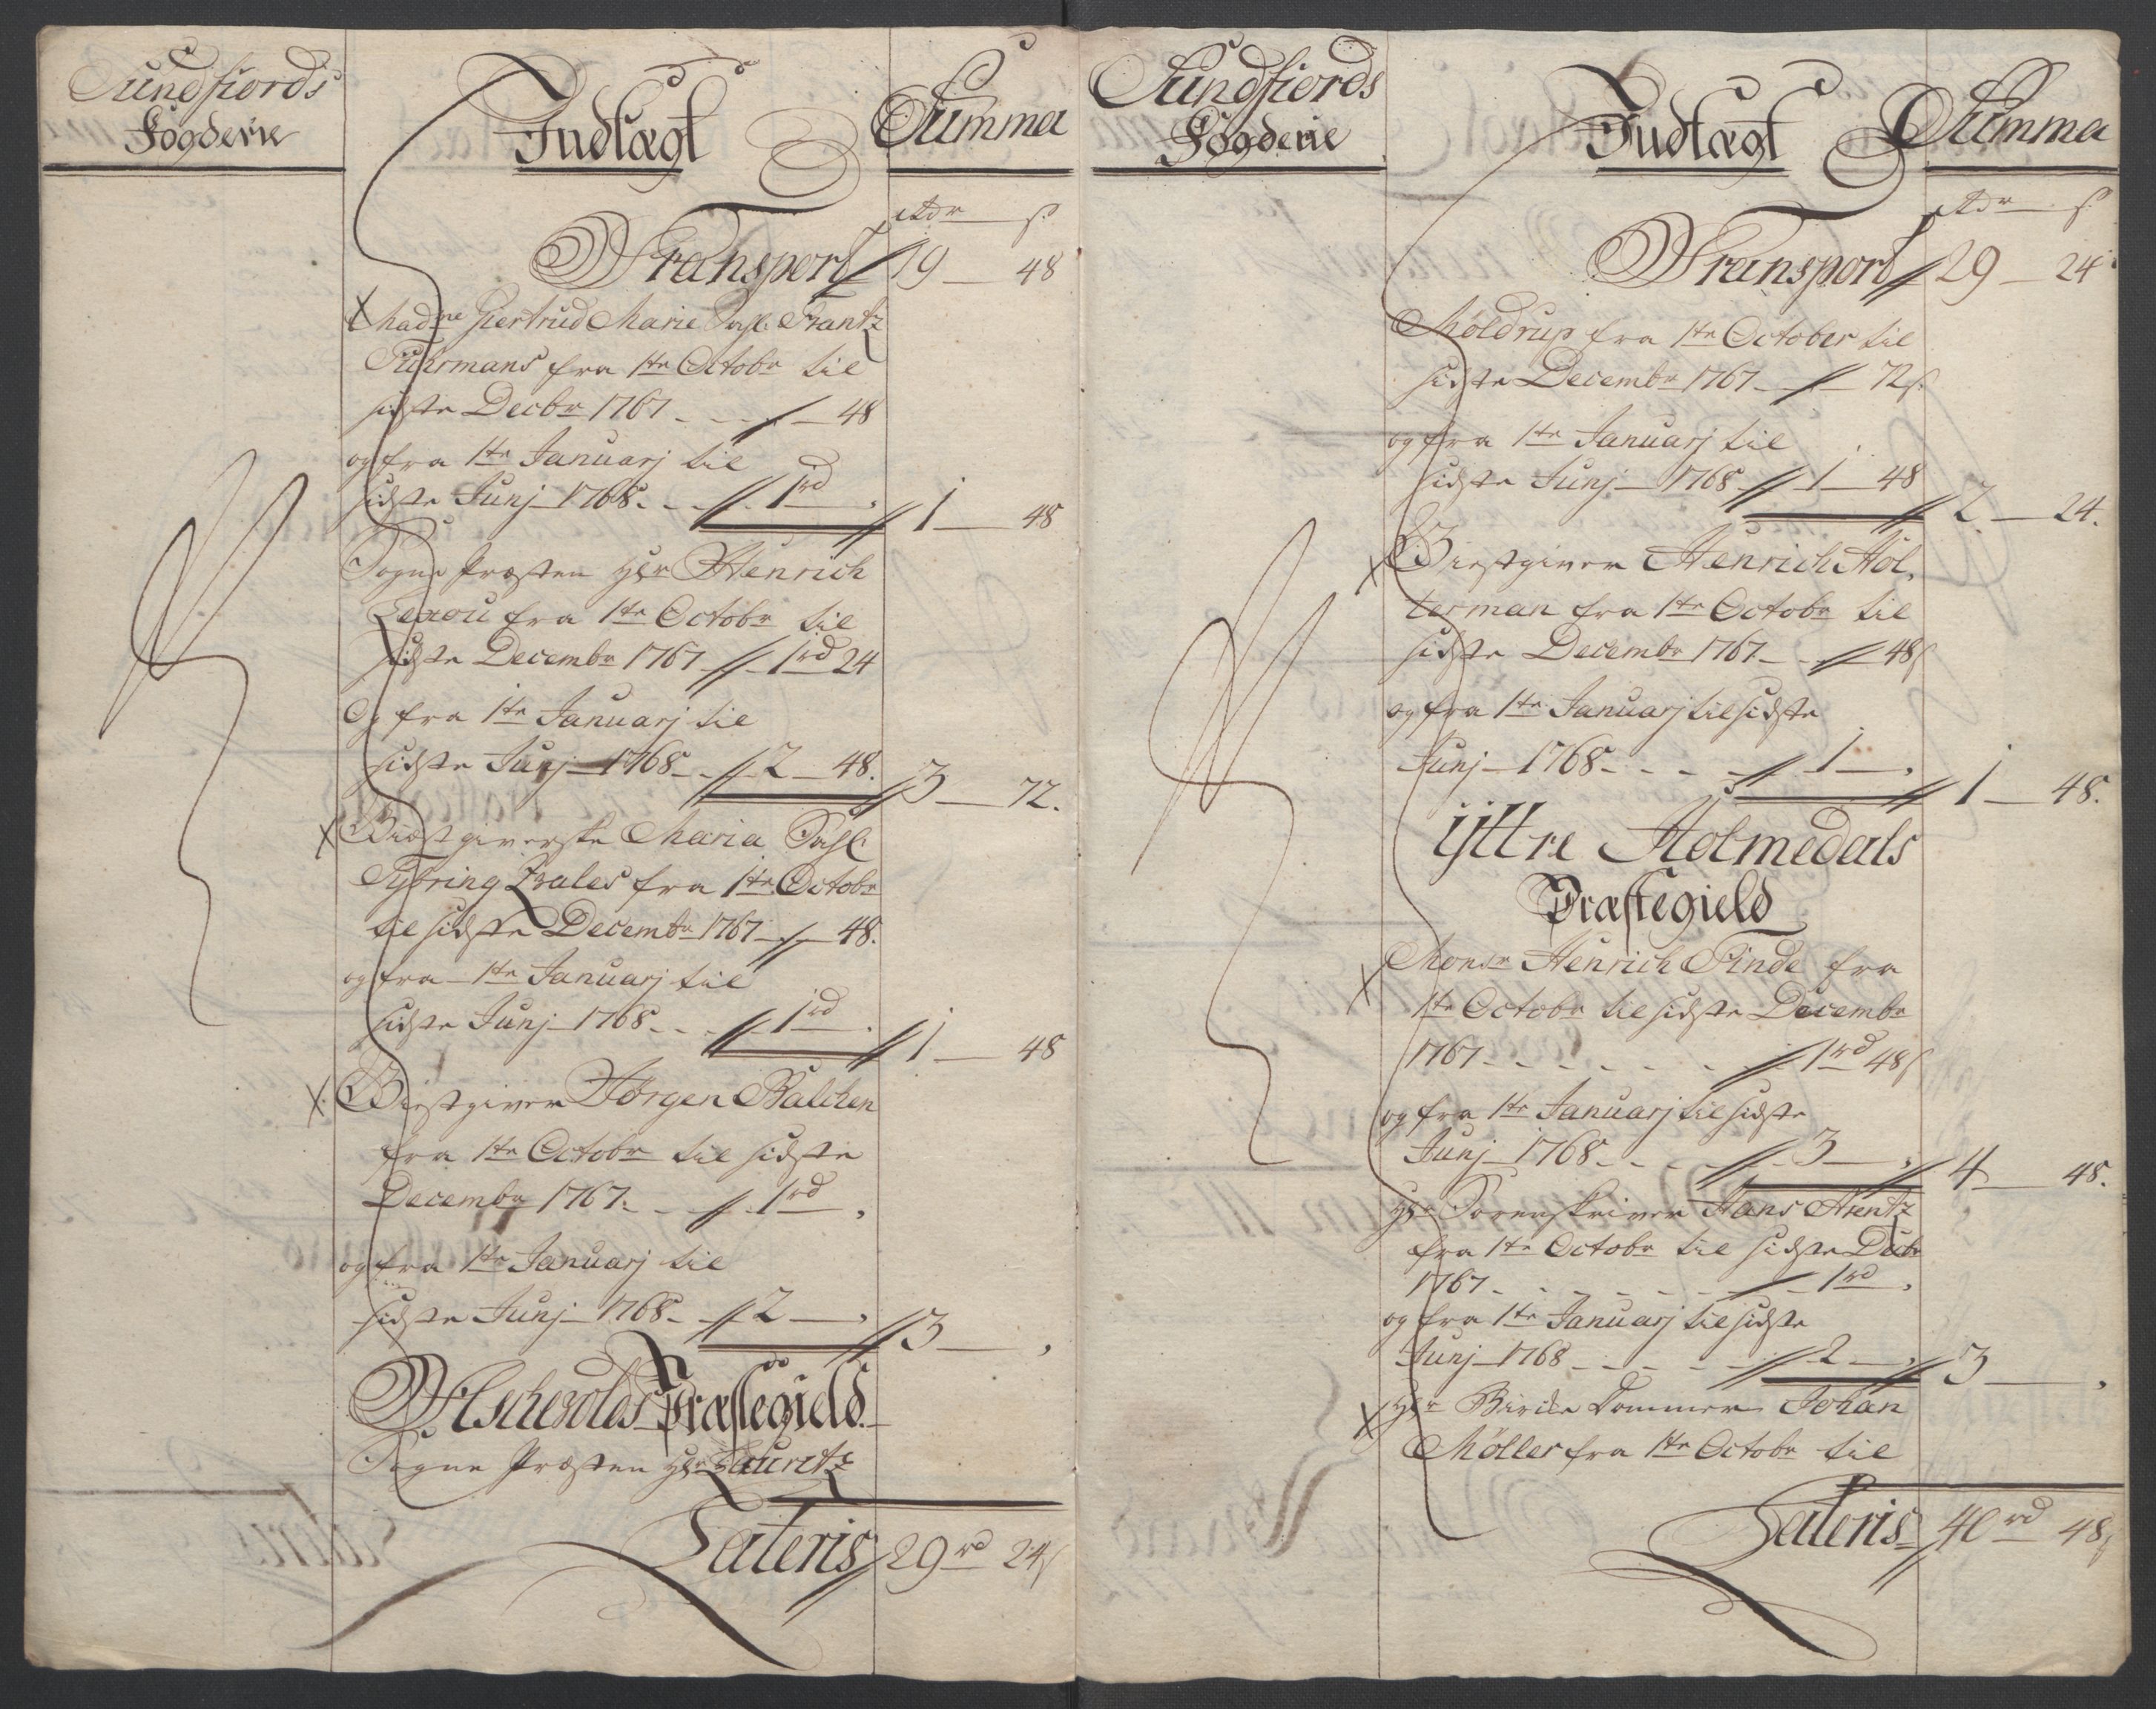 Sundfiords
Fogderie
Indtægt
Summa
rdr ß
Transport 19 — 48
Madme Giertrud Marie Sahl. Frantz
Fuhrmans fra 1te Octobr til
sidste Decbr 1767 - - 48
og fra 1te Januarj til
sidste Junj 1768 - - 1rd 1 — 48
Sogne Præsten Hr Henrich
Lexou fra 1te Octobr til
sidste Decembr 1767 - 1rd 24
og fra 1te Januarj til
sidste Junj 1768 - - 2 — 48. 3 — 72.
Giæstgiverske Maria Sahl.
Tybring Zvales fra 1te Octobr
til sidste Decembr 1767 - 48.
og fra 1te Januarj til
sidste Junj 1768 - - 1rd 1 — 48
Giestgiver Jørgen Balchen
fra 1te Octobr til sidste
Decembr 1767. - - 1rd
og fra 1te Januarj til
sidste Junj 1768 - 2 — 3 —
Aschevolds Præstegield.
Sogne Præsten Hr Lauritz
Lateris 29rd 24ß
Sundfiords
Fogderie
Indtægt
Summa
rdr ß
Transport 29 — 24
Moldrup fra 1te October til
sidste Decembr 1767 - 72ß.
og fra 1te Januarj til
sidste Junj 1768 - 1 — 48 2 — 24.
Giestgiver Henrich Hol,
terman fra 1te Octobr til
sidste Decembr 1767 - - 48ß
og fra 1te Januarj til sidste
Junj 1768 - - - - 1 — 1 — 48.
Yttre Holmedals
Præstegield
Monsr Henrich Finde fra
1te Octobr til sidste Decembr
1767 - - - - - - 1rd 48ß
og fra 1te Januarj til sidste
Junj 1768 - - - - 3 — 4 — 48.
Hr Sorenskriver Hans Arentz
fra 1te Octobr til sidste Decbr
1767 - - - - - - 1rd
og fra 1te Januarj til sidste
Junj 1768 - - - - - 2 — 3 —
Hr Birke Dommer Johan
Möller fra 1te Octobr til
Lateris 40rd 48ß